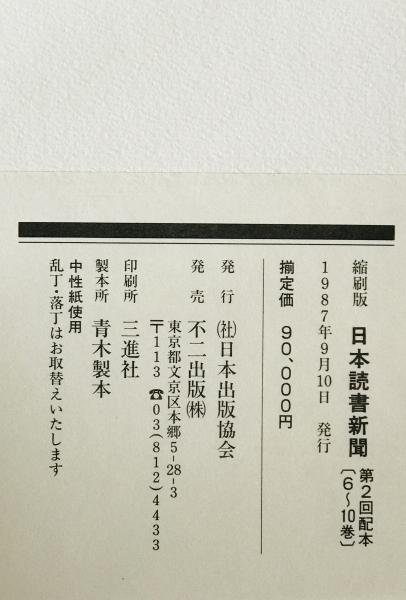 縮刷版 日本読書新聞 第2回配本
〔6〜10巻〕
1987年9月10日 発行
揃定価 90,000円
発行 (社)日本出版協会
発売 不二出版(株)
東京都文京区本郷5-28-3
〒113 ☎03(812)4433
印刷所 三進社
製本所 青木製本
中性紙使用
乱丁・落丁はお取替えいたします